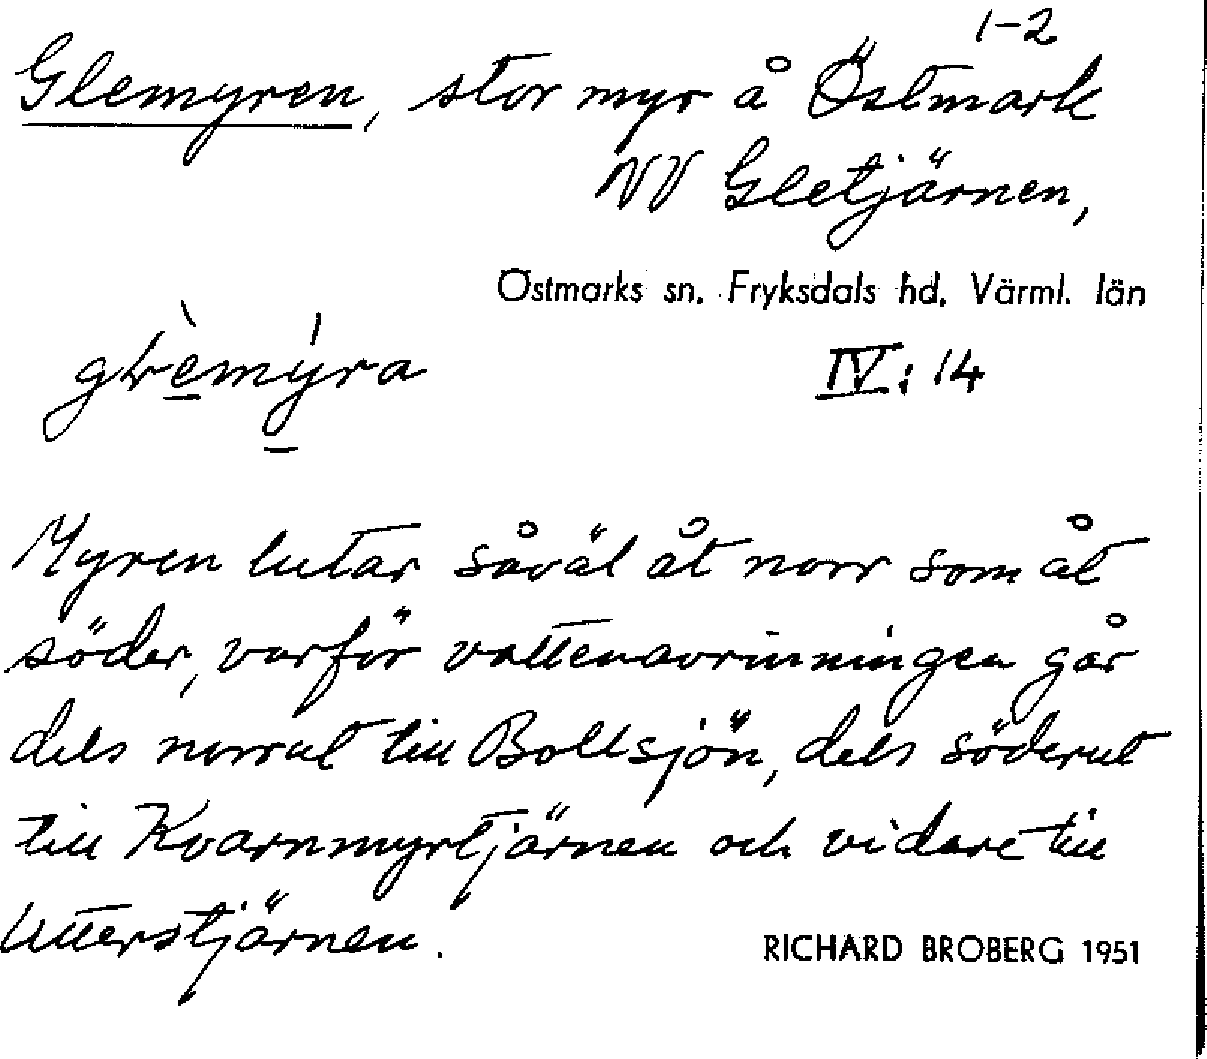 1-2
Glemyren, stor myr å Östmark
NV Gletjärnen,
Östmarks sn. Fryksdals hd. Värml. län
IV: 14
Myren lutar såväl åt norr som åt
söder, varför vattenavrinningen går
dels norrut till Bollsjön, dels söderut
till Kvarnmyrtjärnen och vidare till
Utterstjärnen.
RICHARD BROBERG 1951